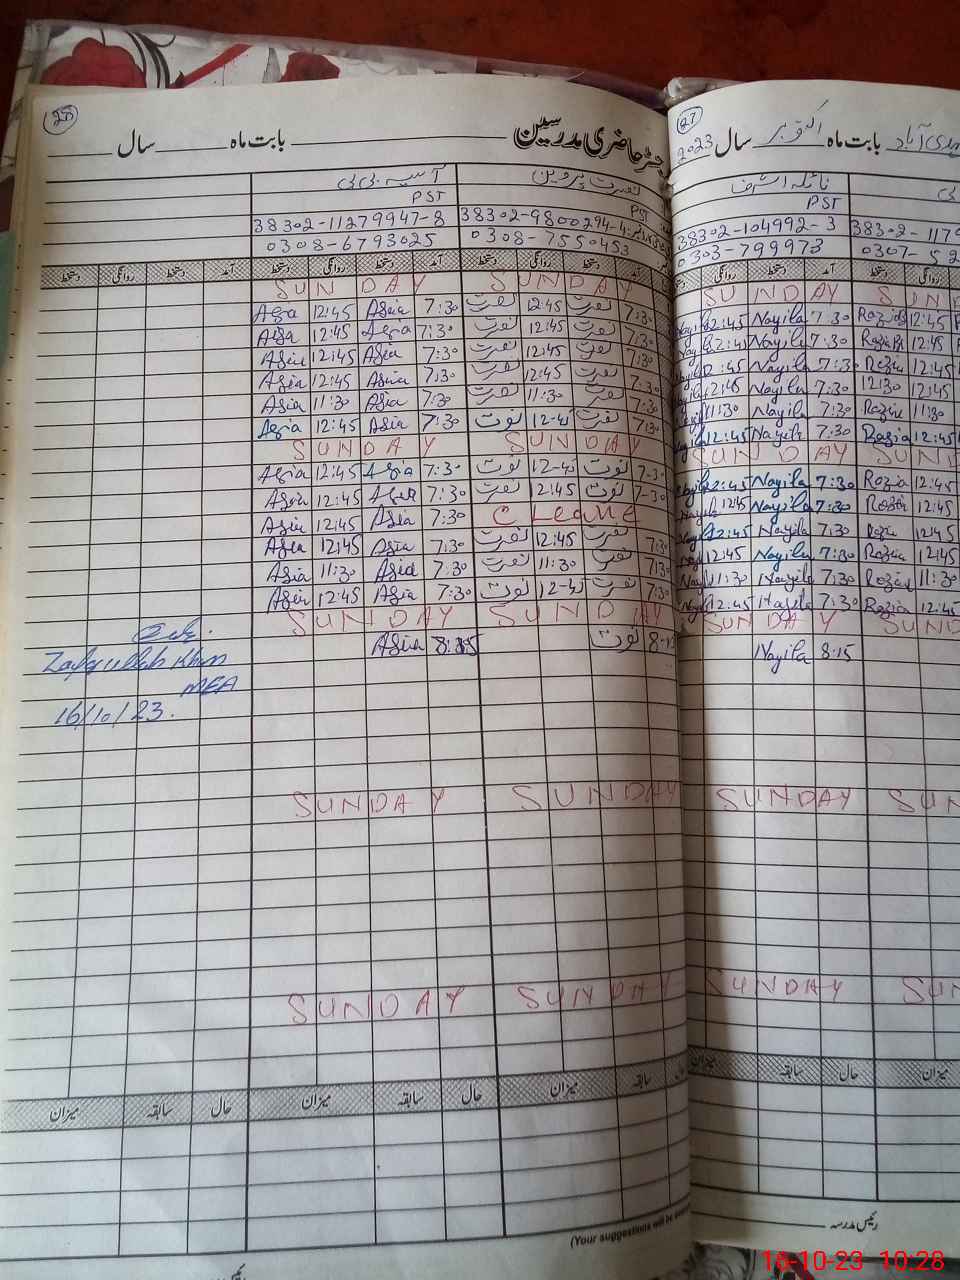 28
رجسٹر حاضری مدرسین بابت ماہ سال
نصرت پروین آسیہ بی بی
PST PST
38302-9800294-4 38302-11279947-8
0308-7550453 0308-6793025
آمد دستخط روانگی دستخط آمد دستخط روانگی دستخط آمد دستخط روانگی دستخط
SUNDAY SUNDAY
12:45 Asia 7:30 نصرت 12:45 نصرت 7:30
Asia 12:45 7:30 نصرت 12:45 نصرت 7:30
Asia 12:45 Asia 7:30 نصرت 12:45 نصرت 7:30
Asia 12:45 Asia 7:30 نصرت 12:45 نصرت 7:30
Asia 11:30 Asia 7:30 نصرت 11:30 نصرت 7:30
Asia 12:45 Asia 7:30 نصرت 12-45 نصرت 7:30
SUNDAY SUNDAY
Asia 12:45 Asia 7:30 نصرت 12-45 نصرت 7-30
Asia 12:45 7:30 نصرت 12:45 نصرت 7-30
Asia 12:45 Asia 7:30 C Leave
Asia 12:45 Asia 7:30 نصرت 12:45 نصرت 7:30
Asia 11:30 Asia 7:30 نصرت 11:30 نصرت 7:30
Asia 12:45 Asia 7:30 نصرت 12-45 نصرت 7:30
SUNDAY SUNDAY
Asia 8:15 نصرت 8-15
Zafarullah Khan
MEA
16/10/23.
SUNDAY SUNDAY
SUNDAY SUNDAY
حال سابقہ میزان حال سابقہ میزان حال سابقہ میزان
(Your suggestions will be
27
بابت ماہ اکتوبر سال 2023
نائلہ اشرف
PST
38302-104992-3 38302-1179
0303-799973 0307-52
آمد دستخط روانگی
SUNDAY SUN
12:45 Nayila 7:30 Razia 12:45
12:45 Nayila 7:30 Razia 12:45
12:45 Nayila 7:30 Razia 12:45
12:45 Nayila 7:30 12:30 12:45
11:30 Nayila 7:30 Razia 11:30
12:45 Nayila 7:30 Razia 12:45
SUNDAY SUN
12:45 Nayila 7:30 Razia 12:45
12:45 Nayila 7:30 Razia 12:45
12:45 Nayila 7:30 Razia 12:45
12:45 Nayila 7:30 Razia 12:45
11:30 Nayila 7:30 Razia 11:30
12:45 Nayila 7:30 Razia 12:45
SUNDAY SUND
Nayila 8:15
SUNDAY SUN
SUNDAY SUN
حال سابقہ میزان
رئیس مدرسہ
16-10-23 10:28